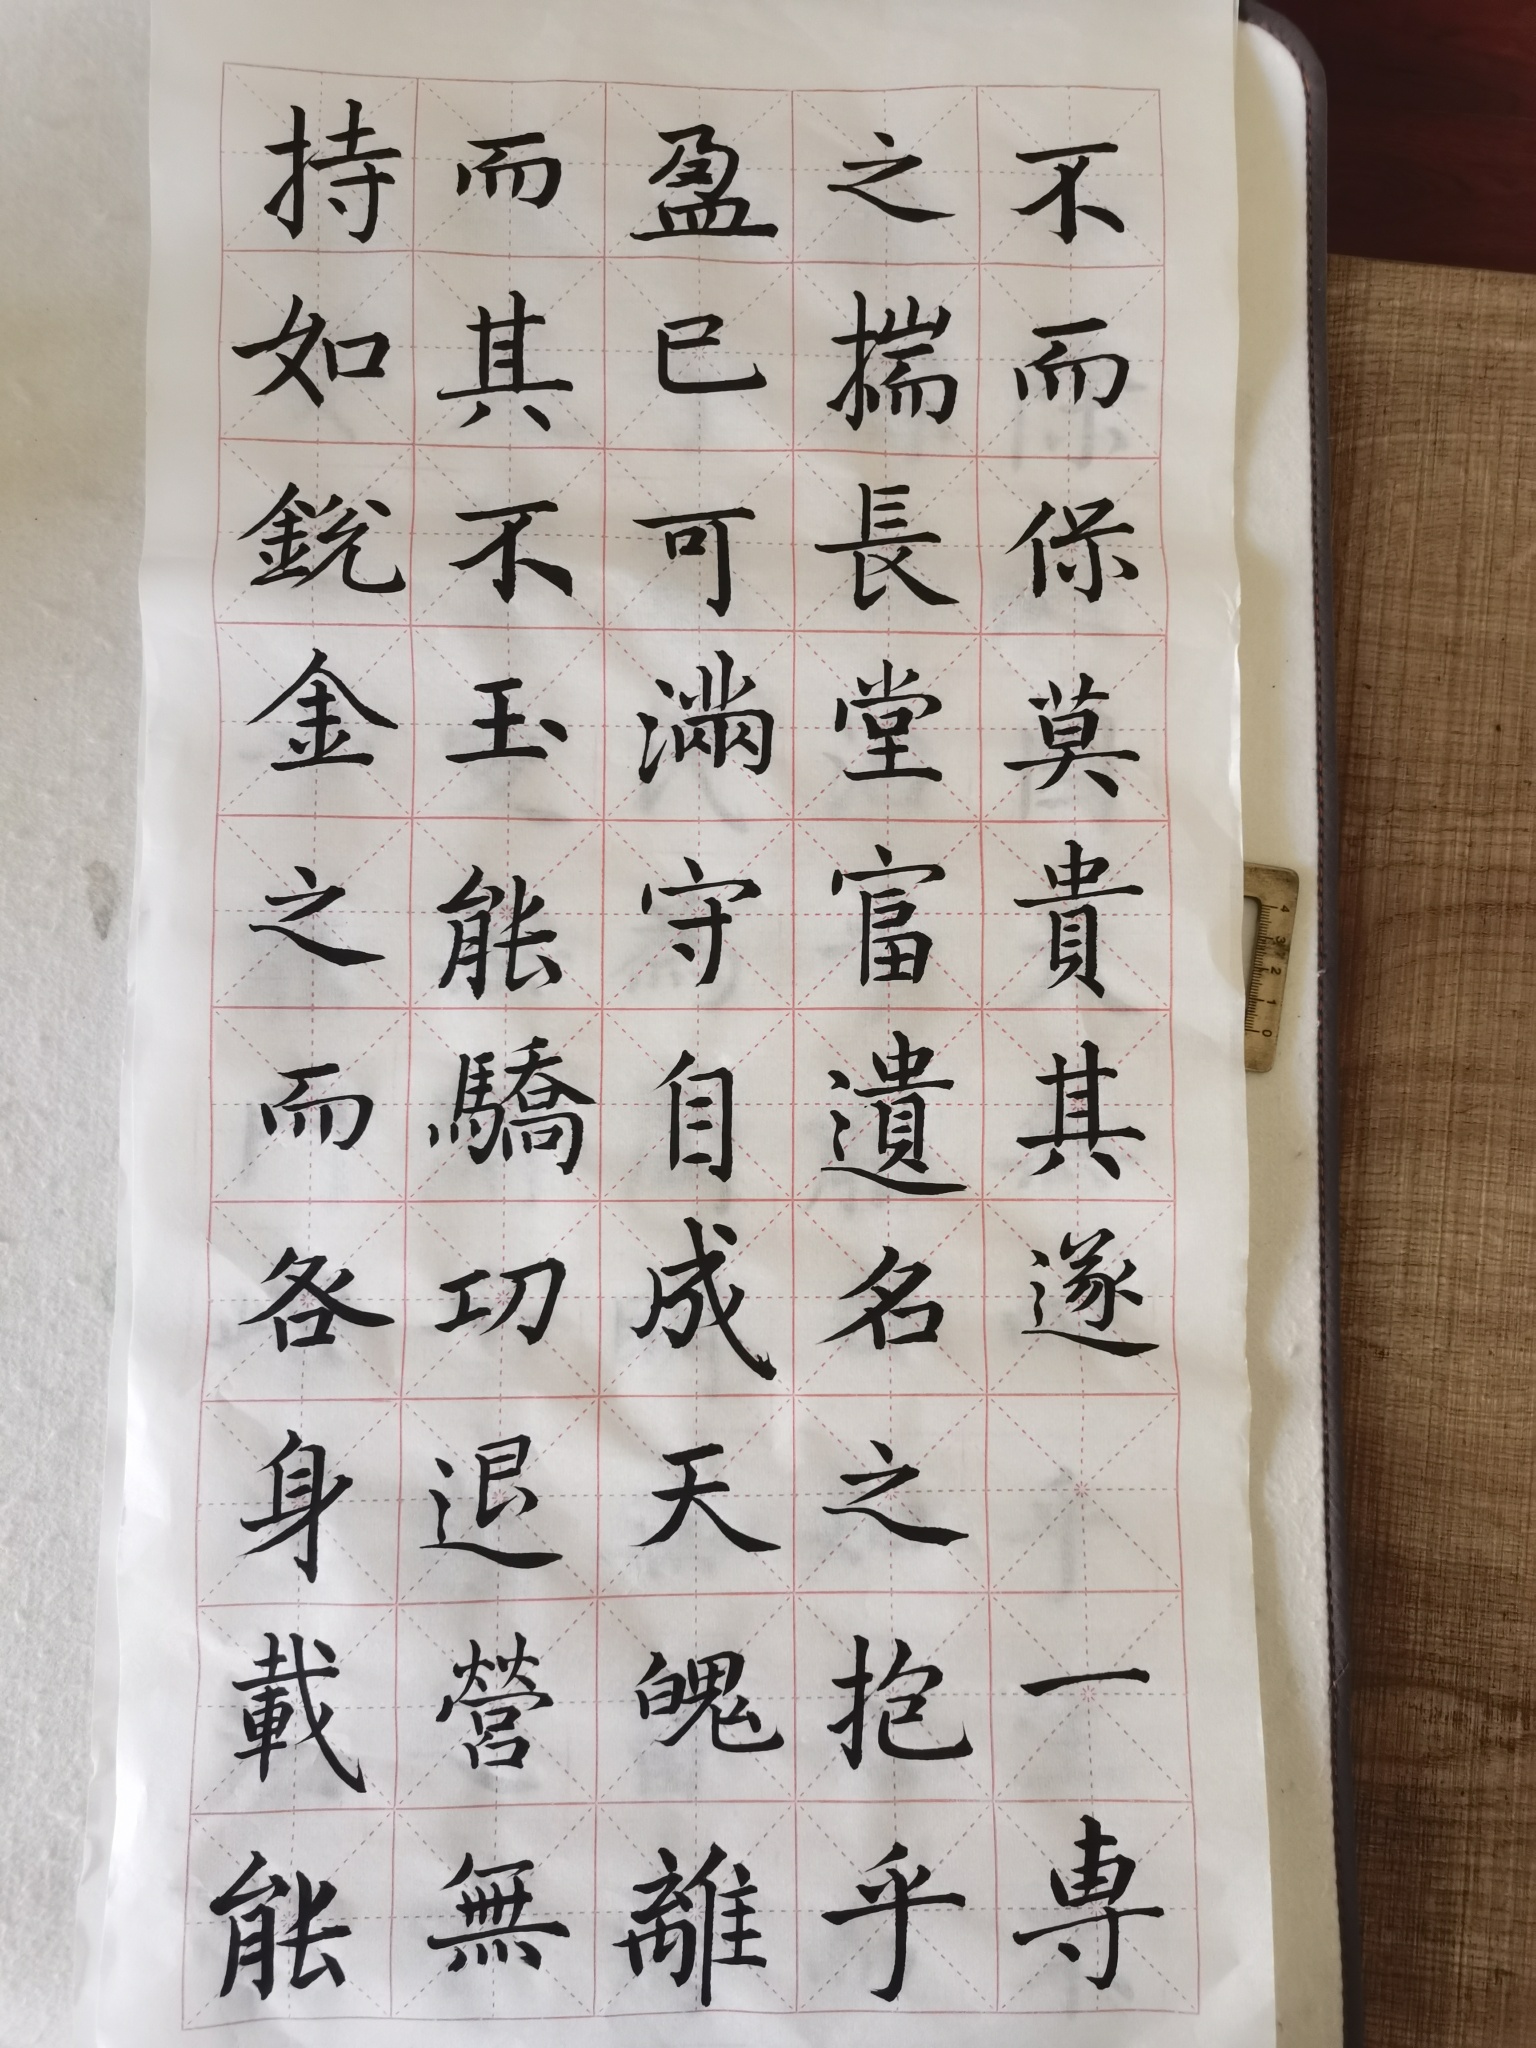 持而盈之不
如其已揣而
銳不可長保
金玉滿堂莫
之能守富貴
而驕自遺其
各功成名遂
身退天之
載營魄抱一
能無離乎專
4 3 2 1 0